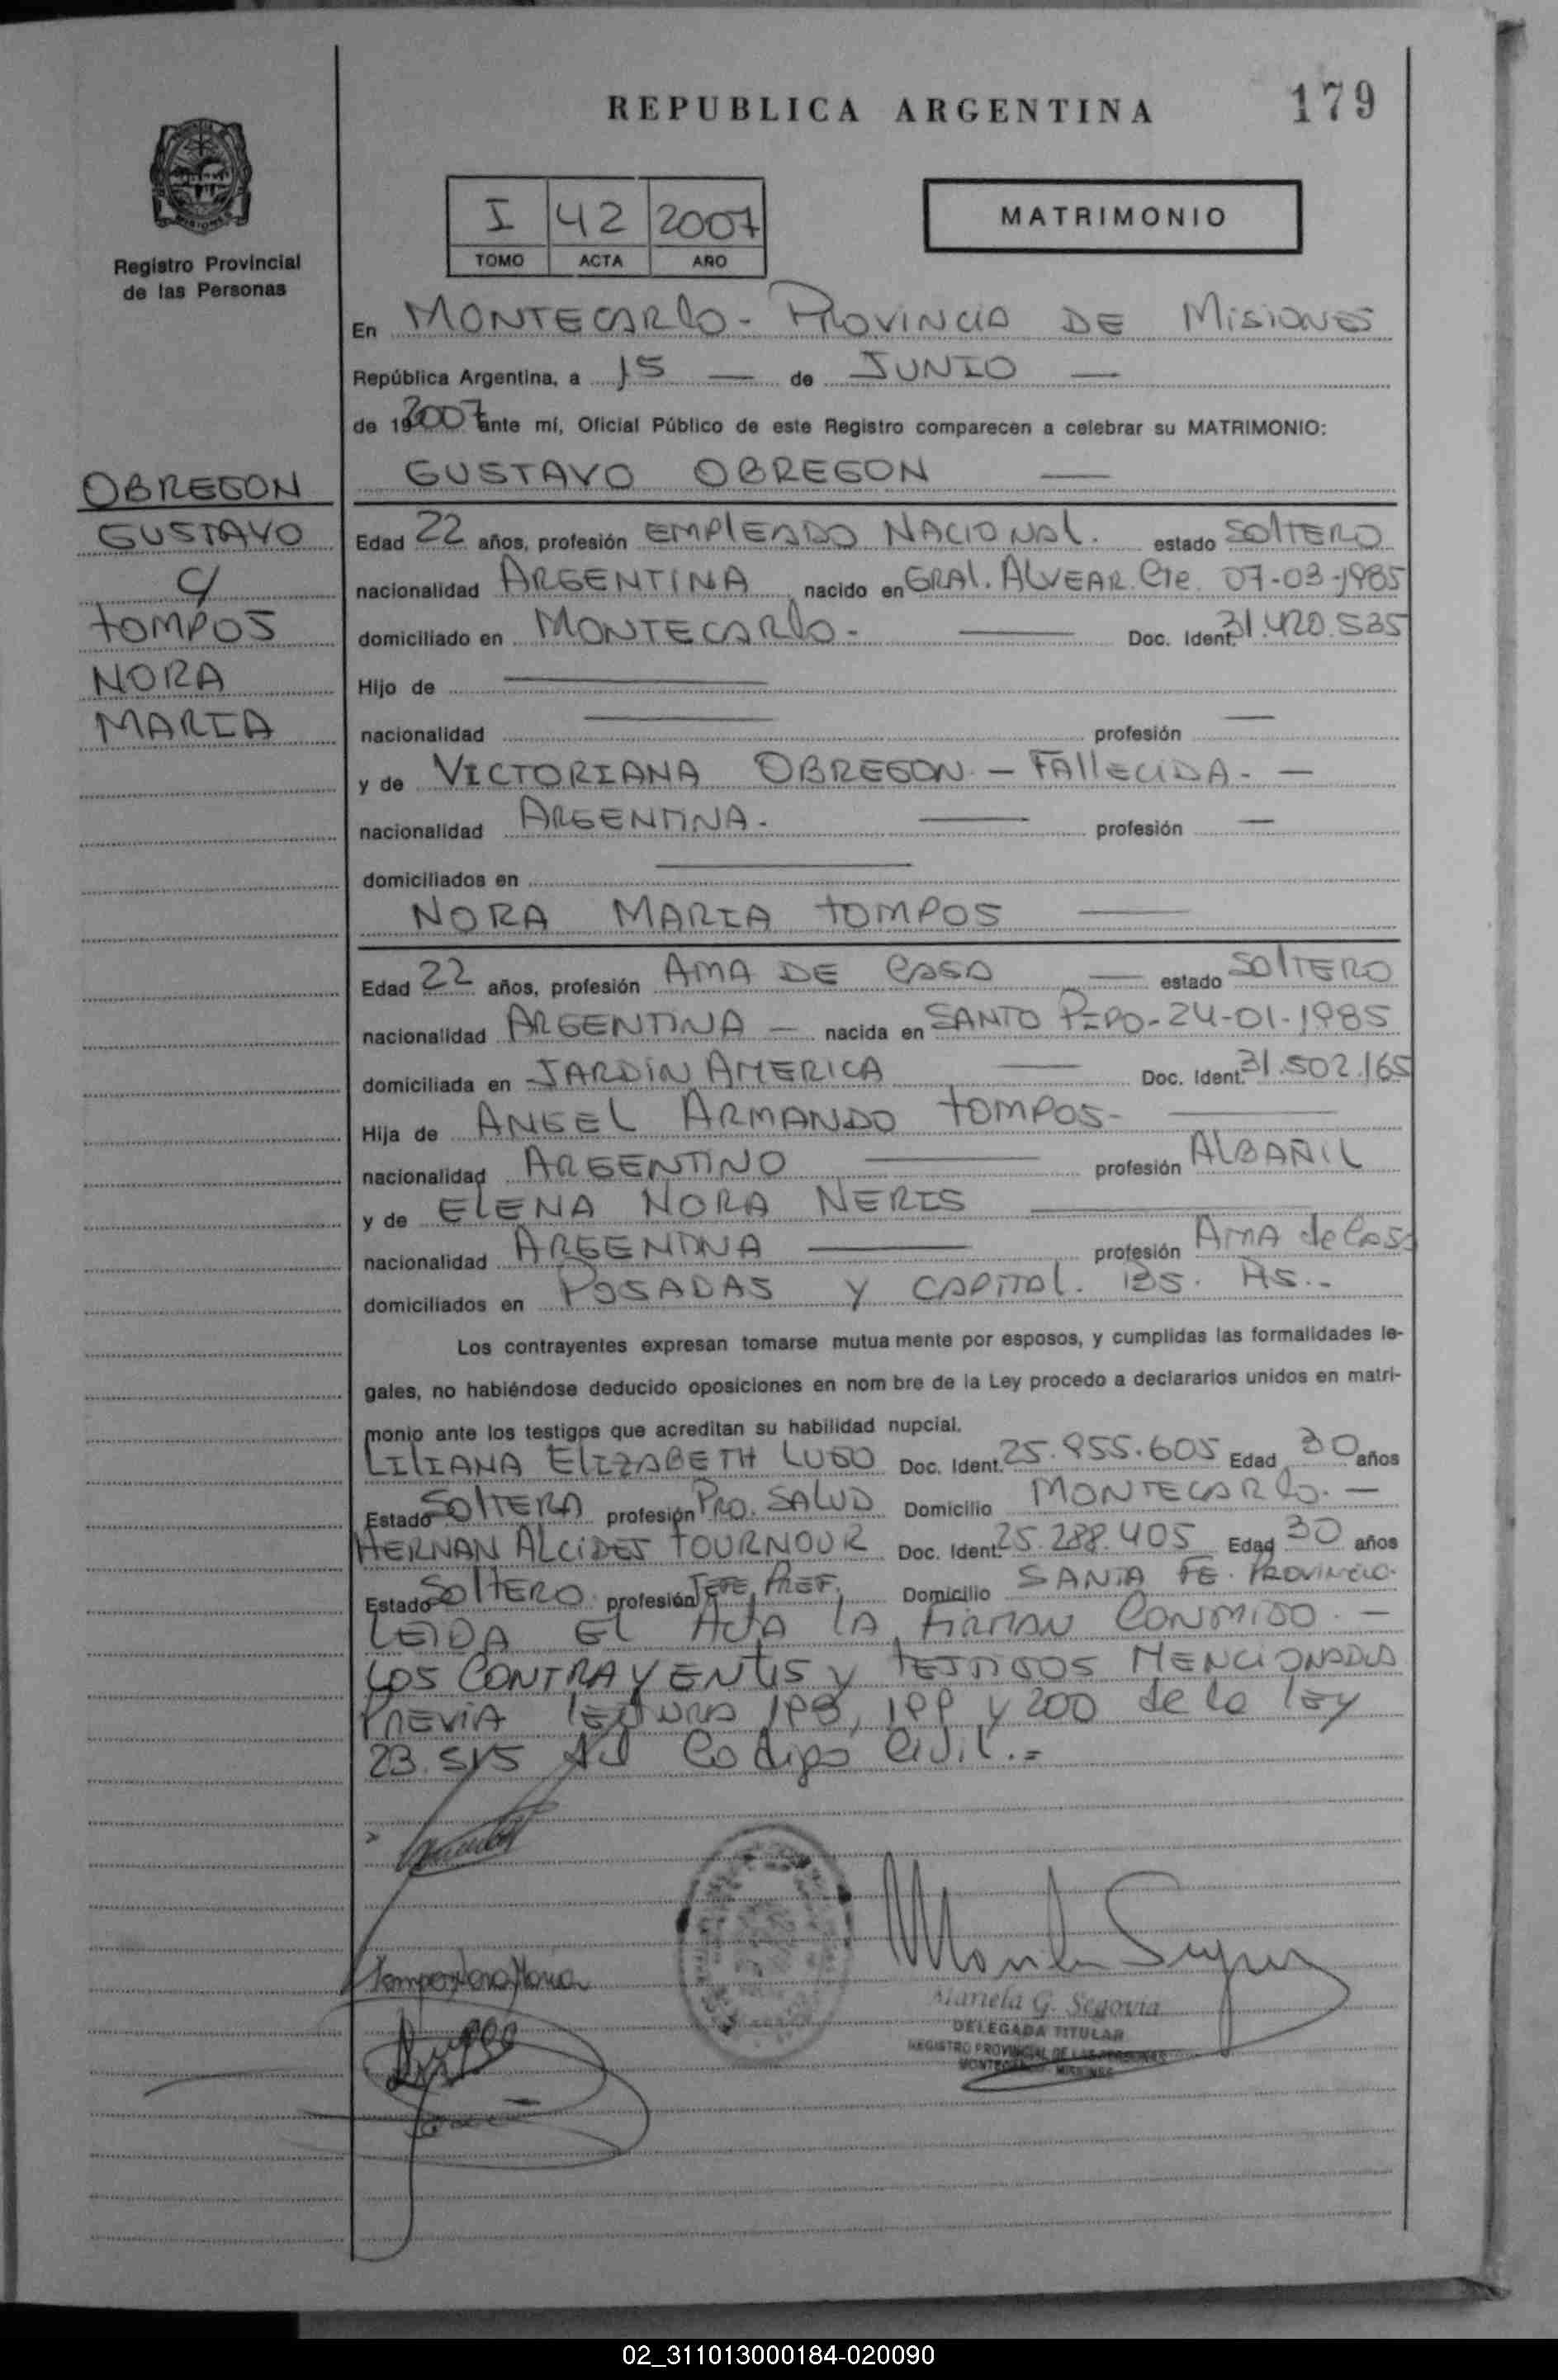 REPUBLICA ARGENTINA
179
Registro Provincial
de las Personas
I 42 2007
TOMO ACTA AÑO
MATRIMONIO
En MONTECARLO - PROVINCIA DE MISIONES
República Argentina, a 15 — de JUNIO —
de 19 2007 ante mí, Oficial Público de este Registro comparecen a celebrar su MATRIMONIO:
GUSTAVO OBREGON —
OBREGON
GUSTAVO
C/
TOMPOS
NORA
MARIA
Edad 22 años, profesión EMPLEADO NACIONAL. estado SOLTERO
nacionalidad ARGENTINA nacido en GRAL. ALVEAR. Cte. 07-03-1985
domiciliado en MONTECARLO - — Doc. Ident. 31.420.535
Hijo de —
nacionalidad — profesión —
y de VICTORIANA OBREGON - FALLECIDA - —
nacionalidad ARGENTINA. — profesión —
domiciliados en —
NORA MARIA TOMPOS —
Edad 22 años, profesión AMA DE CASA — estado SOLTERO
nacionalidad ARGENTINA — nacida en SANTO PIPO - 24-01-1985
domiciliada en JARDIN AMERICA — Doc. Ident. 31.502.165
Hija de ANGEL ARMANDO TOMPOS - —
nacionalidad ARGENTINO — profesión ALBAÑIL
y de ELENA NORA NERIS —
nacionalidad ARGENTINA — profesión AMA de CASA
domiciliados en POSADAS Y CAPITAL. BS. AS..-
Los contrayentes expresan tomarse mutua mente por esposos, y cumplidas las formalidades le-
gales, no habiéndose deducido oposiciones en nom bre de la Ley procedo a declararlos unidos en matri-
monio ante los testigos que acreditan su habilidad nupcial.
LILIANA ELIZABETH LUGO Doc. Ident. 25.955.605 Edad 30 años
Estado SOLTERA profesión PRO. SALUD Domicilio MONTECARLO. —
HERNAN ALCIDES TOURNOUR Doc. Ident. 25.288.405 Edad 30 años
Estado SOLTERO profesión JEFE PREF. Domicilio SANTA FE. PROVINCIA.
LEIDA EL ACTA LA FIRMAN CONMIGO. —
LOS CONTRAYENTES y TESTIGOS MENCIONADOS
PREVIA LECTURA 198, 199 y 200 de la LEY
23.515 del Codigo Civil.=
Tompos Nora Maria
Mariela G. Segovia
DELEGADA TITULAR
REGISTRO PROVINCIAL DE LAS PERSONAS
MONTECARLO MISIONES
02_311013000184-020090